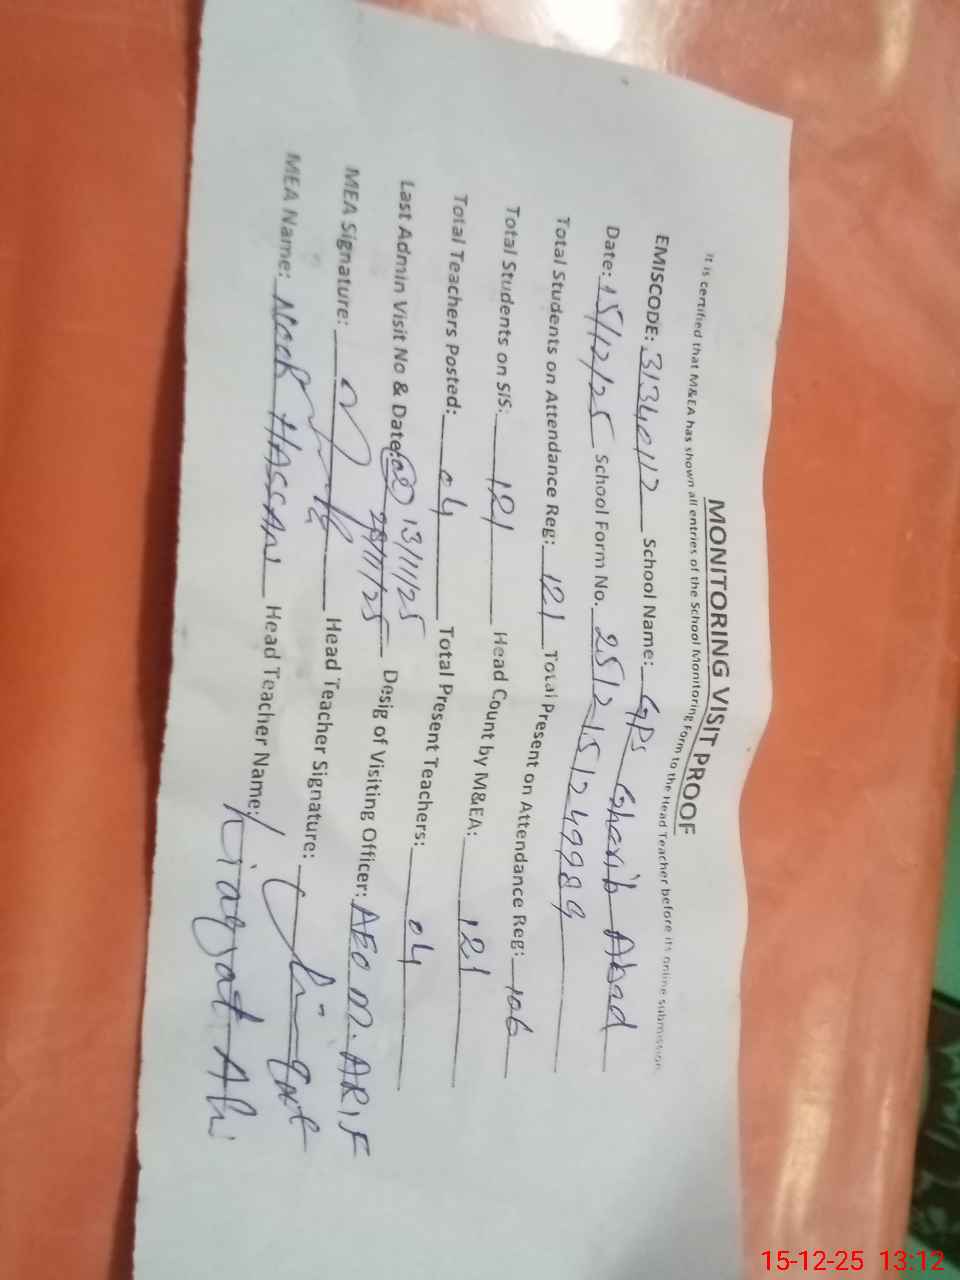 MONITORING VISIT PROOF
It is certified that M&EA has shown all entries of the School Monitoring Form to the Head Teacher before its online submission.
EMISCODE: 31340112 School Name: GPS Gharib Abad
Date: 15/12/25 School Form No. 2512151249989
Total Students on Attendance Reg: 121 Total Present on Attendance Reg: 106
Total Students on SIS: 121 Head Count by M&EA: 121
Total Teachers Posted: 04 Total Present Teachers: 04
Last Admin Visit No & Date: 02 13/11/25
28/11/25 Desig of Visiting Officer: AEO M. ARIF
MEA Signature: Head Teacher Signature:
MEA Name: HASSAN Head Teacher Name: Liaqat Ali
15-12-25 13:12